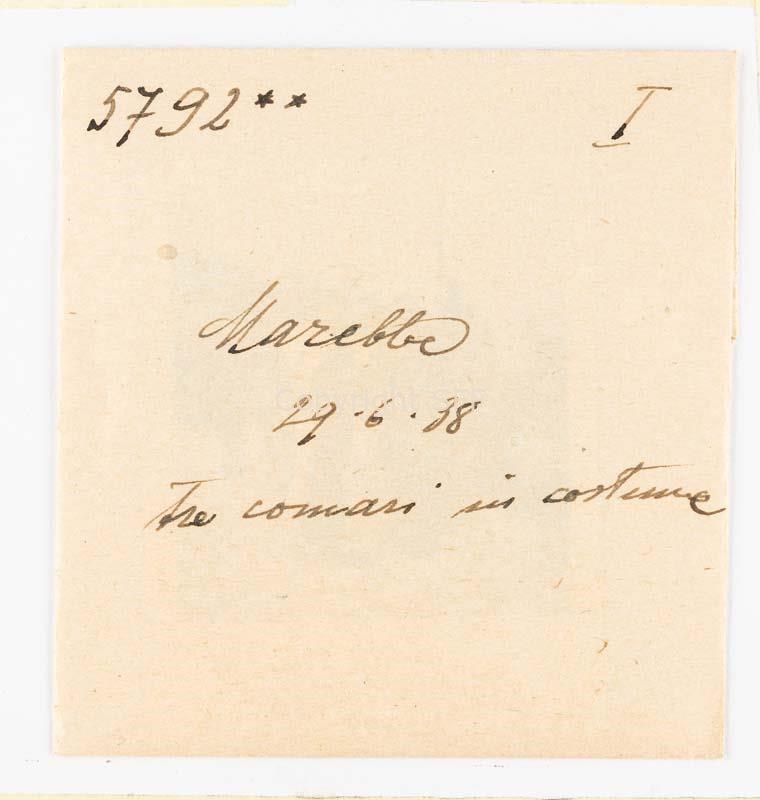 5792** I
Marebbe
29·6·38
tre comari in costume